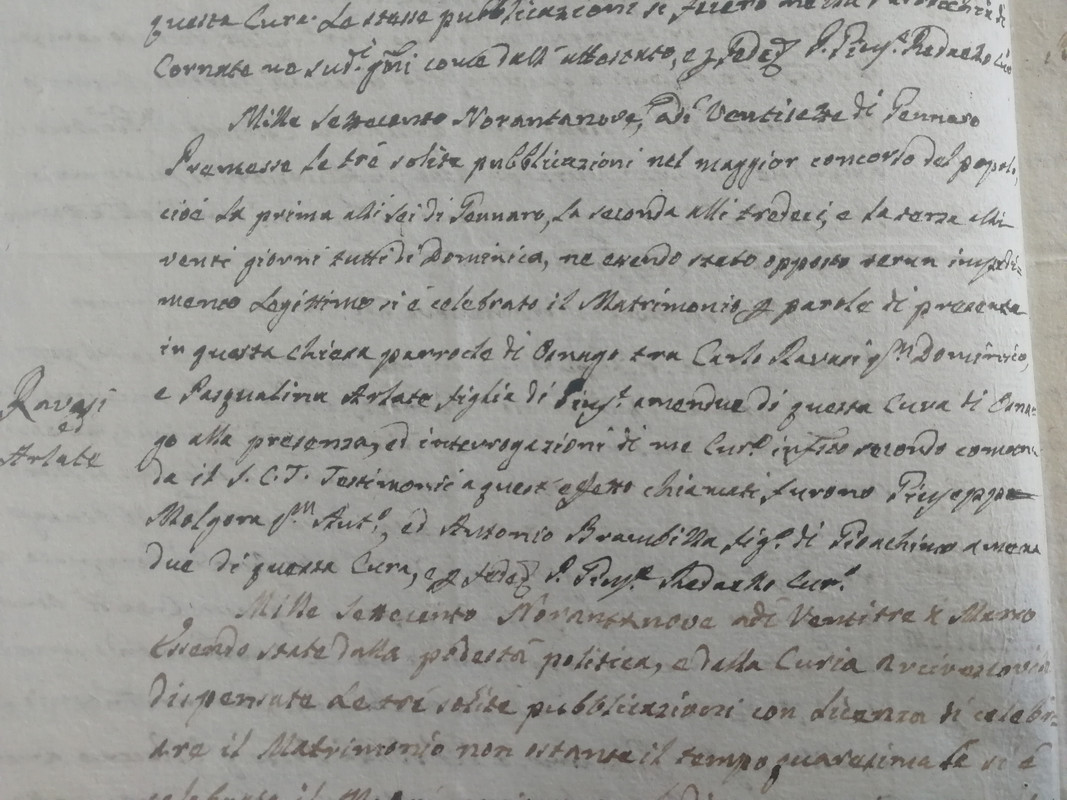 questa Cura. Le stesse pubblicazioni si fecero nella Parocchia di
Cornate ne sud.i gni come dall'attestato, e p fede P. Gius.e Redaello Cur
Mille settecento Novantanove, adi Ventisette di Gennaro
Premesse le tré solite pubblicazioni nel maggior concorso del popolo,
cioé la prima alli sei di Gennaro, la seconda alli tredeci, e la terza alli
venti giorni tutti di Dominica, ne essendo stato opposto verun impedi=
mento legittimo si é celebrato il Matrimonio p parole di presente
in questa Chiesa parrocle di Osnago tra Carlo Ravasi qm Dominico,
e Pasqualina Arlate figlia di Gius.e amendue di questa Cura di Osna=
Ravasi
ed
Arlate
go alla presenza, ed interrogazioni di me Cur.o infrtto secondo coman
da il S. C. T. Testimonii a quest'effetto chiamati furono Giuseppe
Molgora qm Ant.o, ed Antonio Brambilla fig.o di Gioachimo amen
due di questa Cura, e p fede P. Gius.e Redaello Cur.o
Mille settecento Novantanove adi Ventitre Marzo
Essendo state dalla podestà politica, e dalla Curia Arcivescovile
dispensate le tré solite pubblicazioni con licenza di celebr=
are il Matrimonio non ostante il tempo quaresimale si é
celebrato il